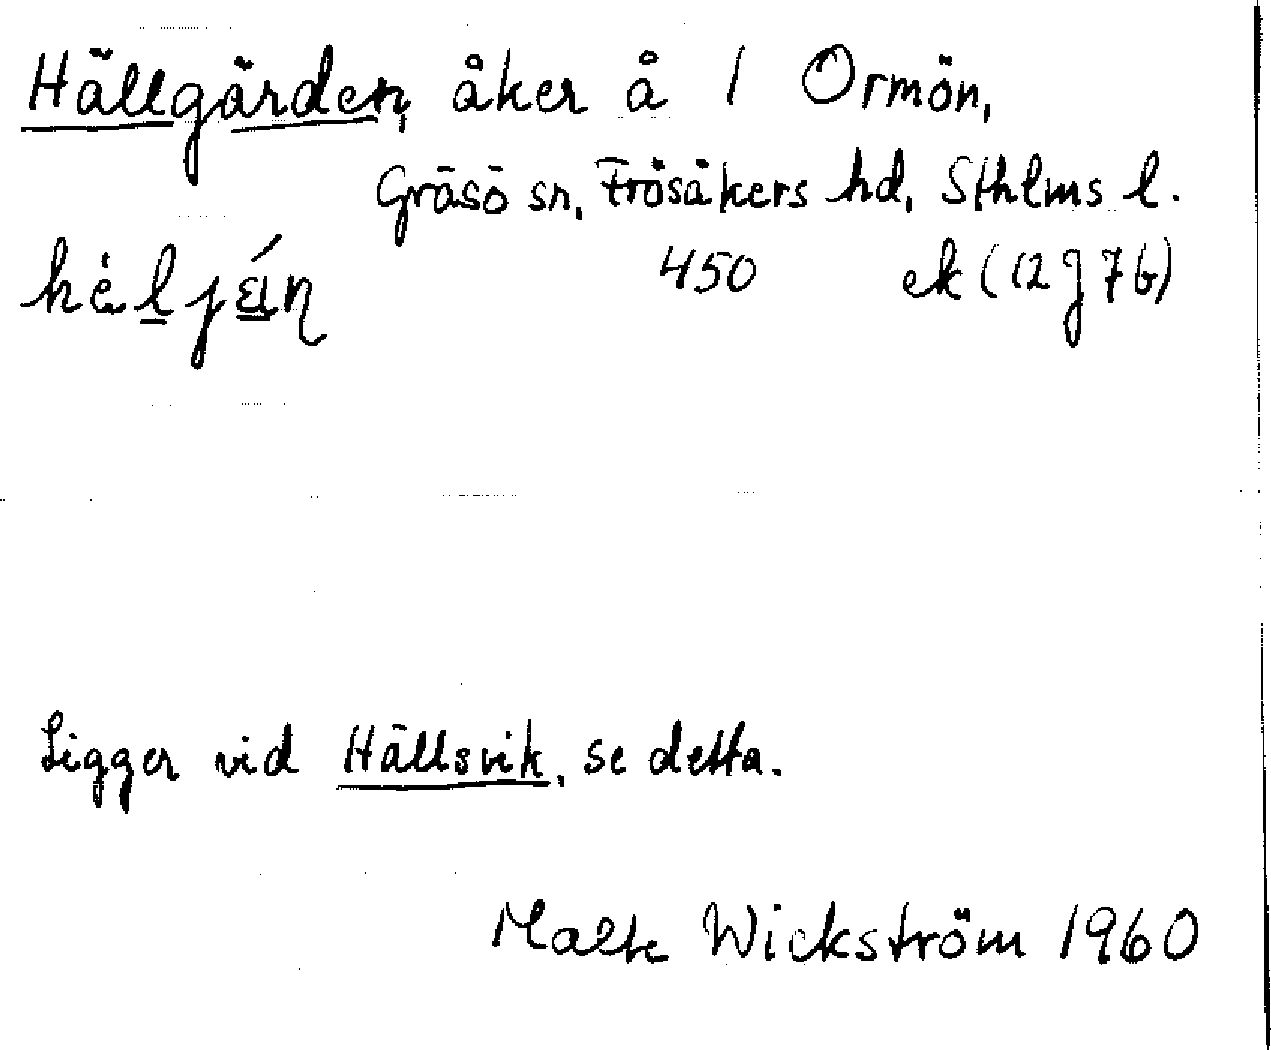 Hällgärden, åker å 1 Ormön,
Gräsö sn, Frösåkers hd, Sthlms l.
450 ek (12 g 7 b)
Ligger vid Hällsvik, se detta.
Malte Wickström 1960